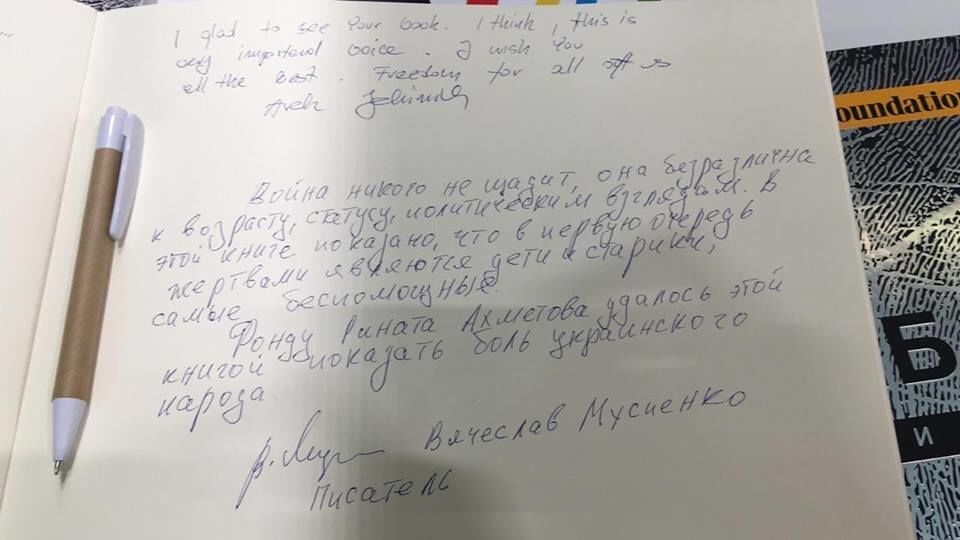 I glad to see Your book. I think, this is
very important voice. I wish You
all the best. Freedom for all of us
Война никого не щадит, она безразлична
к возрасту, статусу, политическим взглядам. В
этой книге показано, что в первую очередь
жертвами являются дети и старики,
самые беспомощные.
Фонду Рината Ахметова удалось этой
книгой показать боль украинского
народа.
Вячеслав Мусиенко
Писатель
oundation
Б
И